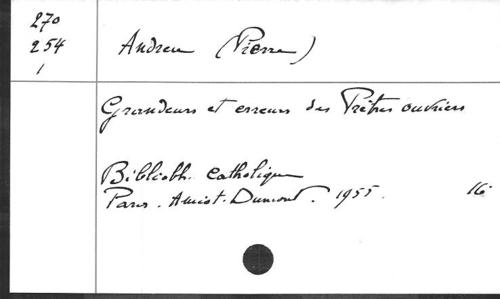 270
254
1
Andreu (Pierre)
Grandeurs et erreurs des Prêtres ouvriers
Biblioth. Catholique
Paris. Amiot-Dumont. 1955. 16°